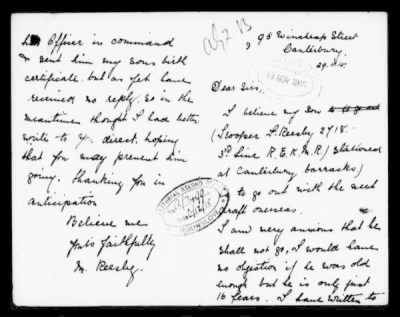 95 Wincheap Street
Canterbury.
29.11.15.
Dear Sirs,
I believe my son
(Trooper L. Reesby 2718.
3rd Line R.E.K.M.R.) stationed
at Canterbury barracks)
is to go out with the next
draft overseas.
I am very anxious that he
shall not go, I would have
no objection if he was old
enough but he is only just
16 years. I have written to
Officer in command
& sent him my sons birth
certificate but as yet have
received no reply. so in the
meantime thought I had better
write to you direct, hoping
that you may prevent him
going. Thanking you in
anticipation
Believe me
Yours faithfully
M. Reesby.